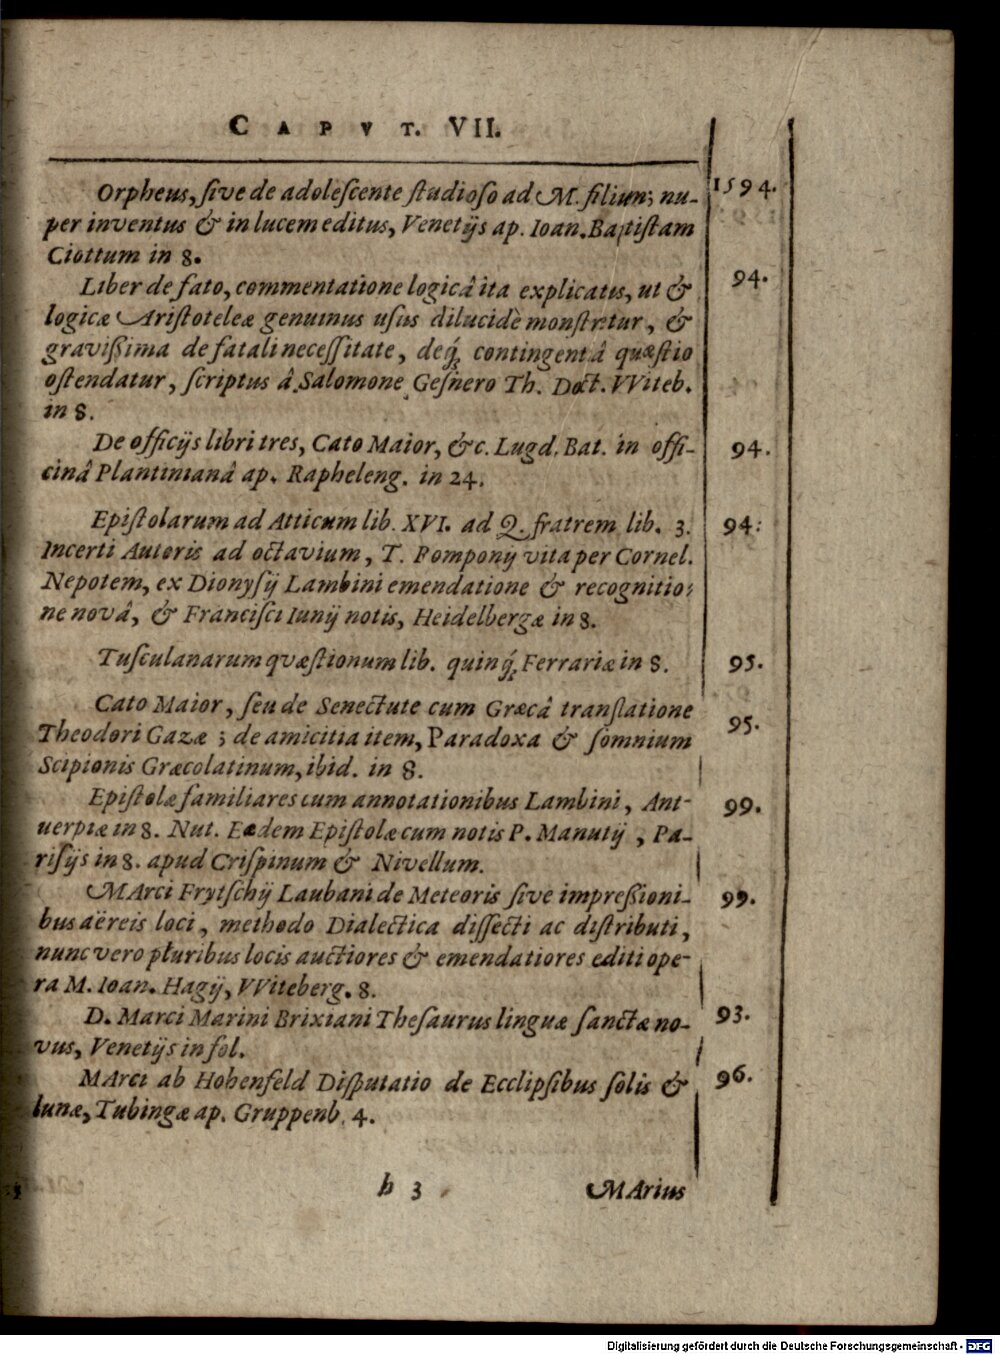 CAPVT. VII.
Orpheus, ſive de adoleſcente ſtudioſo ad M. filium; nu- 1594.
per inventus & in lucem editus, Venetijs ap. Ioan. Baptiſtam
Ciottum in 8.
Liber de fato, commentatione logicâ ita explicatus, ut & 94.
logicæ Ariſtoteleæ genuinus uſus dilucidè monſtretur, &
gravißima de fatali neceſſitate, deq́; contingentiâ quæſtio
oſtendatur, ſcriptus â Salomone Geſnero Th. Doct. VViteb.
in 8.
De officijs libri tres, Cato Maior, &c. Lugd. Bat. in offi- 94.
cinâ Plantinianâ ap. Rapheleng. in 24.
Epiſtolarum ad Atticum lib. XVI. ad Q. fratrem lib. 3. 94.
Incerti Autoris ad octavium, T. Pomponij vita per Cornel.
Nepotem, ex Dionyſij Lambini emendatione & recognitio-
ne novâ, & Franciſci Iunij notis, Heidelbergæ in 8.
Tuſculanarum quæſtionum lib. quinq́; Ferrariæ in 8. 95.
Cato Maior, ſeu de Senectute cum Græcâ tranſlatione 95.
Theodori Gazæ ; de amicitia item, Paradoxa & ſomnium
Scipionis Græcolatinum, ibid. in 8.
Epiſtolæ familiares cum annotationibus Lambini, Ant- 99.
uerpiæ in 8. Nut. Eædem Epiſtolæ cum notis P. Manutij, Pa-
riſijs in 8. apud Criſpinum & Nivellum.
MArci Frytſchij Laubani de Meteoris ſive impreßioni- 99.
bus aëreis loci, methodo Dialectica diſſecti ac diſtributi,
nunc vero pluribus locis auctiores & emendatiores editi ope-
ra M. Ioan. Hagij, VViteberg. 8.
D. Marci Marini Brixiani Theſaurus linguæ ſanctæ no- 93.
vus, Venetijs in fol.
MArci ab Hohenfeld Diſputatio de Ecclipſibus ſolis & 96.
lunæ, Tubingæ ap. Gruppenb. 4.
h 3 MArius
Digitalisierung gefördert durch die Deutsche Forschungsgemeinschaft - DFG